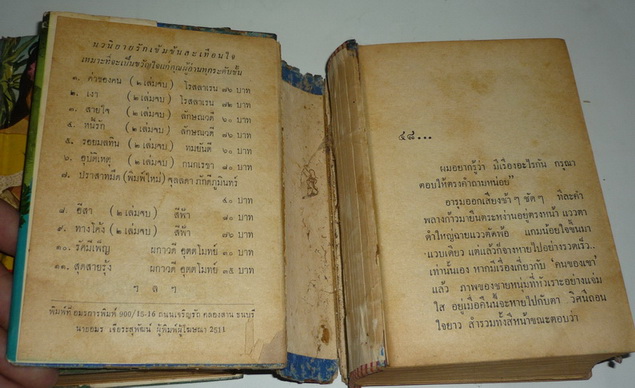 นวนิยายรักเข้มข้นสะเทือนใจ
เหมาะที่จะเป็นขวัญใจแก่คุณผู้อ่านทุกระดับชั้น
๑. ค่าของคน (๒ เล่มจบ) โรสลาเรน ๗๖ บาท
๒. เงา (๒ เล่มจบ) โรสลาเรน ๗๒ บาท
๓. สายใจ (๒ เล่มจบ) ลักษณวดี ๗๖ บาท
๔. หนี้รัก (๒ เล่มจบ) ลักษณวดี ๖๐ บาท
๕. รอยมลทิน (๒ เล่มจบ) ทมยันตี ๘๐ บาท
๖. อุบัติเหตุ (๒ เล่มจบ) กนกเรขา ๘๐ บาท
๗. ปราสาทมืด (พิมพ์ใหม่) จุลลดา ภักดีภูมินทร์
๔๐ บาท
๘. อีสา (๒ เล่มจบ) สีฟ้า ๘๐ บาท
๙. ทางโค้ง (๒ เล่มจบ) สีฟ้า ๗๖ บาท
๑๐. รัศมีเพ็ญ ผกาวดี อุตตโมทย์ ๓๐ บาท
๑๑. สุดสายรุ้ง ผกาวดี อุตตโมทย์ ๓๕ บาท
ฯ ล ฯ
พิมพ์ที่ อมรการพิมพ์ 900/15-16 ถนนเจริญรัถ คลองสาน ธนบุรี
นายอมร เจือรสุพัฒน์ ผู้พิมพ์ผู้โฆษณา 2511
๔๘...
ผมอยากรู้ว่า มีเรื่องอะไรกัน กรุณา
ตอบให้ตรงคำถามหน่อย”
อารุมออกเสียงช้า ๆ ชัด ๆ ทีละคำ
พลางก้าวมายืนตระหง่านอยู่ตรงหน้า แววตา
ดำใหญ่ฉายแววคัดค้อ แถมน้อยใจขึ้นมา
แวบเดียว แต่แล้วก็จางหายไปอย่างรวดเร็ว..
เท่านั้นเอง หากมีเรื่องเกี่ยวกับ ‘คนของเขา’
แล้ว ภาพของชายหนุ่มที่หัวเราะอย่างแจ่ม
ใส อยู่เมื่อคืนนี้จะหายไปกับตา วิศนีถอน
ใจยาว สำรวมทั้งสีหน้าขณะตอบว่า